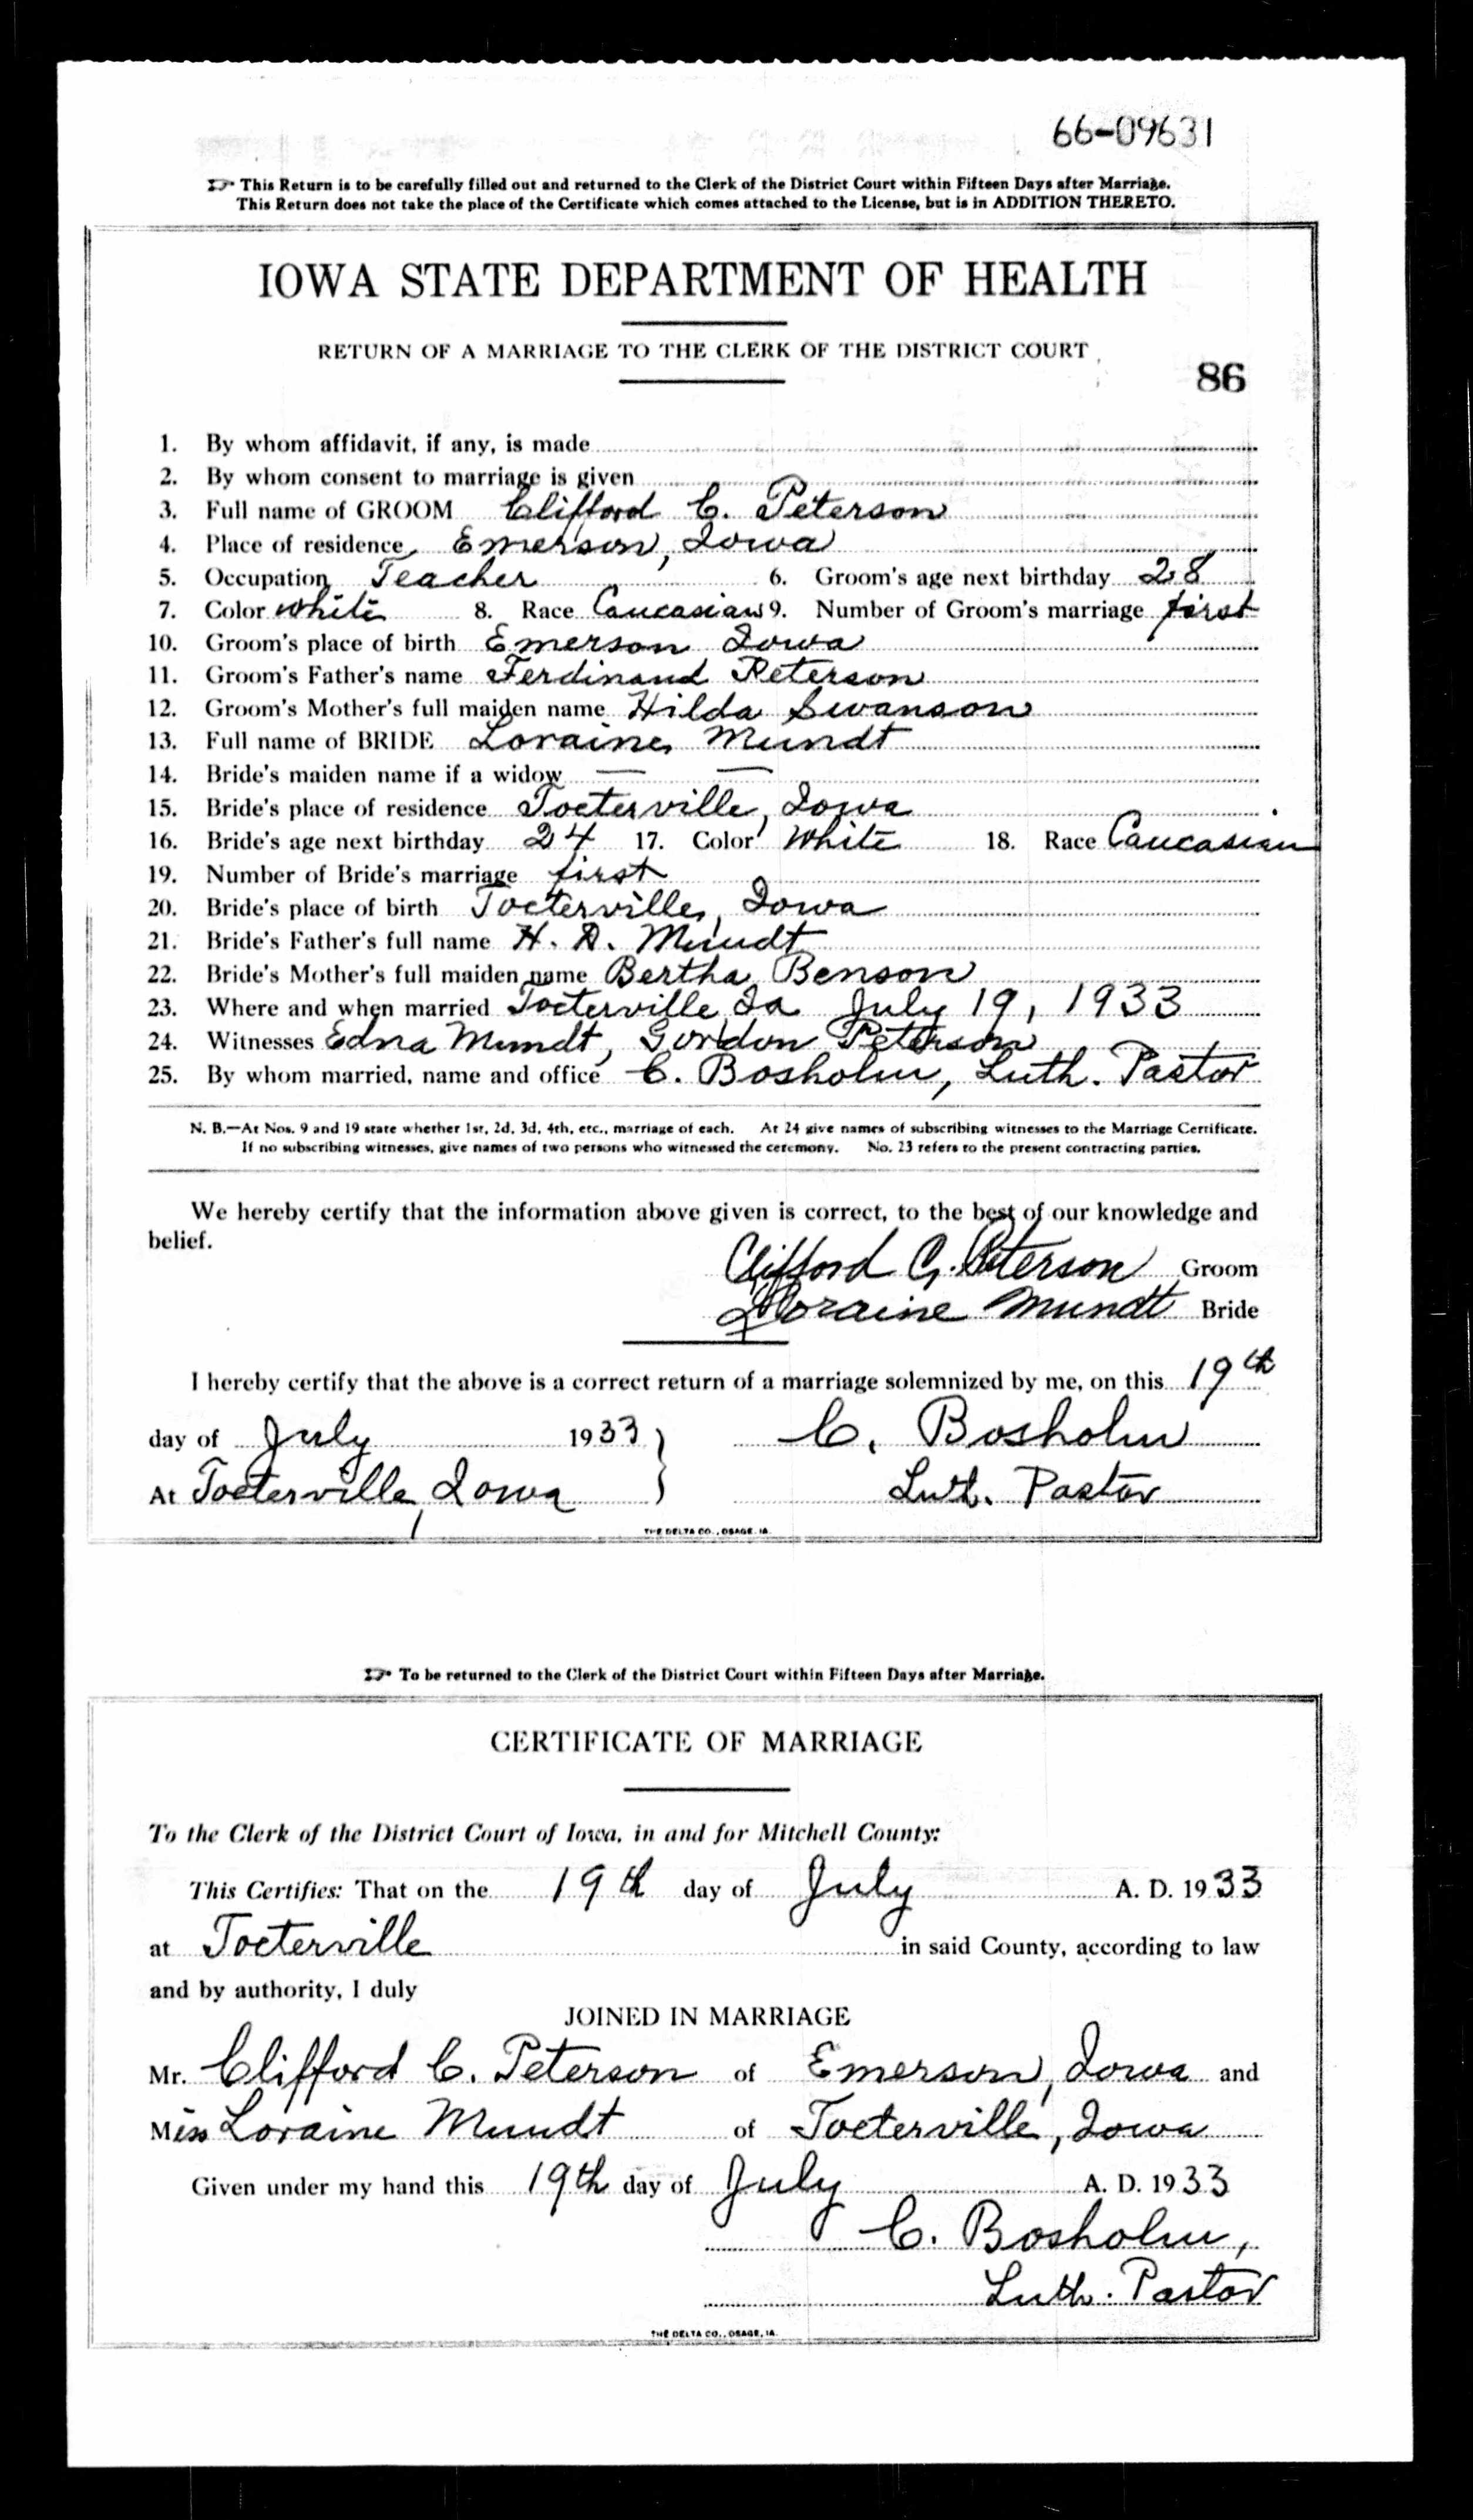 66-09631
☞ This Return is to be carefully filled out and returned to the Clerk of the District Court within Fifteen Days after Marriage.
This Return does not take the place of the Certificate which comes attached to the License, but is in ADDITION THERETO.
IOWA STATE DEPARTMENT OF HEALTH
RETURN OF A MARRIAGE TO THE CLERK OF THE DISTRICT COURT
86
1. By whom affidavit, if any, is made
2. By whom consent to marriage is given
3. Full name of GROOM Clifford C. Peterson
4. Place of residence Emerson, Iowa
5. Occupation Teacher 6. Groom's age next birthday 28
7. Color White 8. Race Caucasian 9. Number of Groom's marriage first
10. Groom's place of birth Emerson Iowa
11. Groom's Father's name Ferdinand Peterson
12. Groom's Mother's full maiden name Hilda Swanson
13. Full name of BRIDE Loraine Mundt
14. Bride's maiden name if a widow — —
15. Bride's place of residence Toeterville, Iowa
16. Bride's age next birthday 24 17. Color White 18. Race Caucasian
19. Number of Bride's marriage first
20. Bride's place of birth Toeterville, Iowa
21. Bride's Father's full name H. D. Mundt
22. Bride's Mother's full maiden name Bertha Benson
23. Where and when married Toeterville, Ia July 19, 1933
24. Witnesses Edna Mundt, Gordon Peterson
25. By whom married, name and office C. Bosholm, Luth. Pastor
N. B.—At Nos. 9 and 19 state whether 1st, 2d, 3d, 4th, etc., marriage of each. At 24 give names of subscribing witnesses to the Marriage Certificate.
If no subscribing witnesses, give names of two persons who witnessed the ceremony. No. 23 refers to the present contracting parties.
We hereby certify that the information above given is correct, to the best of our knowledge and
belief.
Clifford C. Peterson Groom
Loraine Mundt Bride
I hereby certify that the above is a correct return of a marriage solemnized by me, on this 19th
day of July 1933 } C. Bosholm
At Toeterville, Iowa Luth. Pastor
THE DELTA CO., OSAGE, IA.
☞ To be returned to the Clerk of the District Court within Fifteen Days after Marriage.
CERTIFICATE OF MARRIAGE
To the Clerk of the District Court of Iowa, in and for Mitchell County:
This Certifies: That on the 19th day of July A. D. 1933
at Toeterville in said County, according to law
and by authority, I duly
JOINED IN MARRIAGE
Mr. Clifford C. Peterson of Emerson, Iowa and
Miss Loraine Mundt of Toeterville, Iowa
Given under my hand this 19th day of July A. D. 1933
C. Bosholm,
Luth. Pastor
THE DELTA CO., OSAGE, IA.